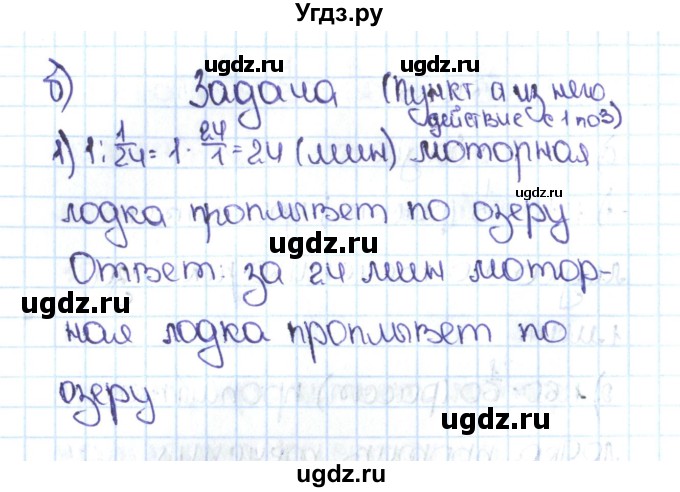 Угдз.ру
ugdz.ru ugdz.ru
б) Задача (Пункт а из него
действие с 1 по 3)
1) 1 : 1/24 = 1 · 24/1 = 24 (мин) моторная
ugdz.ru
лодка проплывет по озеру
ugdz.ru
Ответ: за 24 мин мотор-
ugdz.ru ugdz.ru
ная лодка проплывет по
ugdz.ru
озеру
ugdz.ru
ugdz.ru